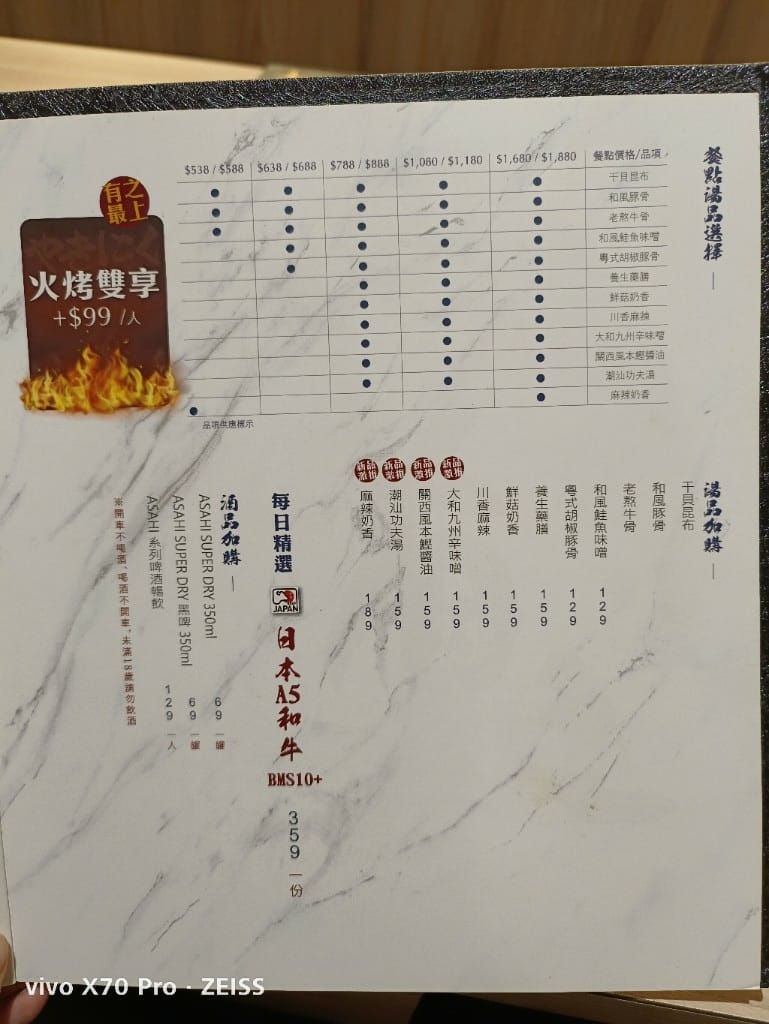 餐點湯品選擇
$538 / $588 $638 / $688 $788 / $888 $1,080 / $1,180 $1,680 / $1,880 餐點價格/品項
干貝昆布
和風豚骨
老熬牛骨
和風鮭魚味噌
粵式胡椒豚骨
養生藥膳
鮮菇奶香
川香麻辣
大和九州辛味噌
關西風本鰹醬油
潮汕功夫湯
麻辣奶香
品項供應標示
有之
最上
やきにく
火烤雙享
+$99 /人
湯品加購
干貝昆布
和風豚骨
老熬牛骨
和風鮭魚味噌 129
粵式胡椒豚骨 129
養生藥膳 159
鮮菇奶香 159
川香麻辣 159
新品激推 大和九州辛味噌 159
新品激推 關西風本鰹醬油 159
新品激推 潮汕功夫湯 159
新品激推 麻辣奶香 189
每日精選 JAPAN 日本A5和牛 BMS10+ 359 一份
酒品加購
ASAHI SUPER DRY 350ml 69 一罐
ASAHI SUPER DRY 黑啤 350ml 69 一罐
ASAHI 系列啤酒暢飲 129 一人
※開車不喝酒、喝酒不開車，未滿18歲請勿飲酒
vivo X70 Pro · ZEISS